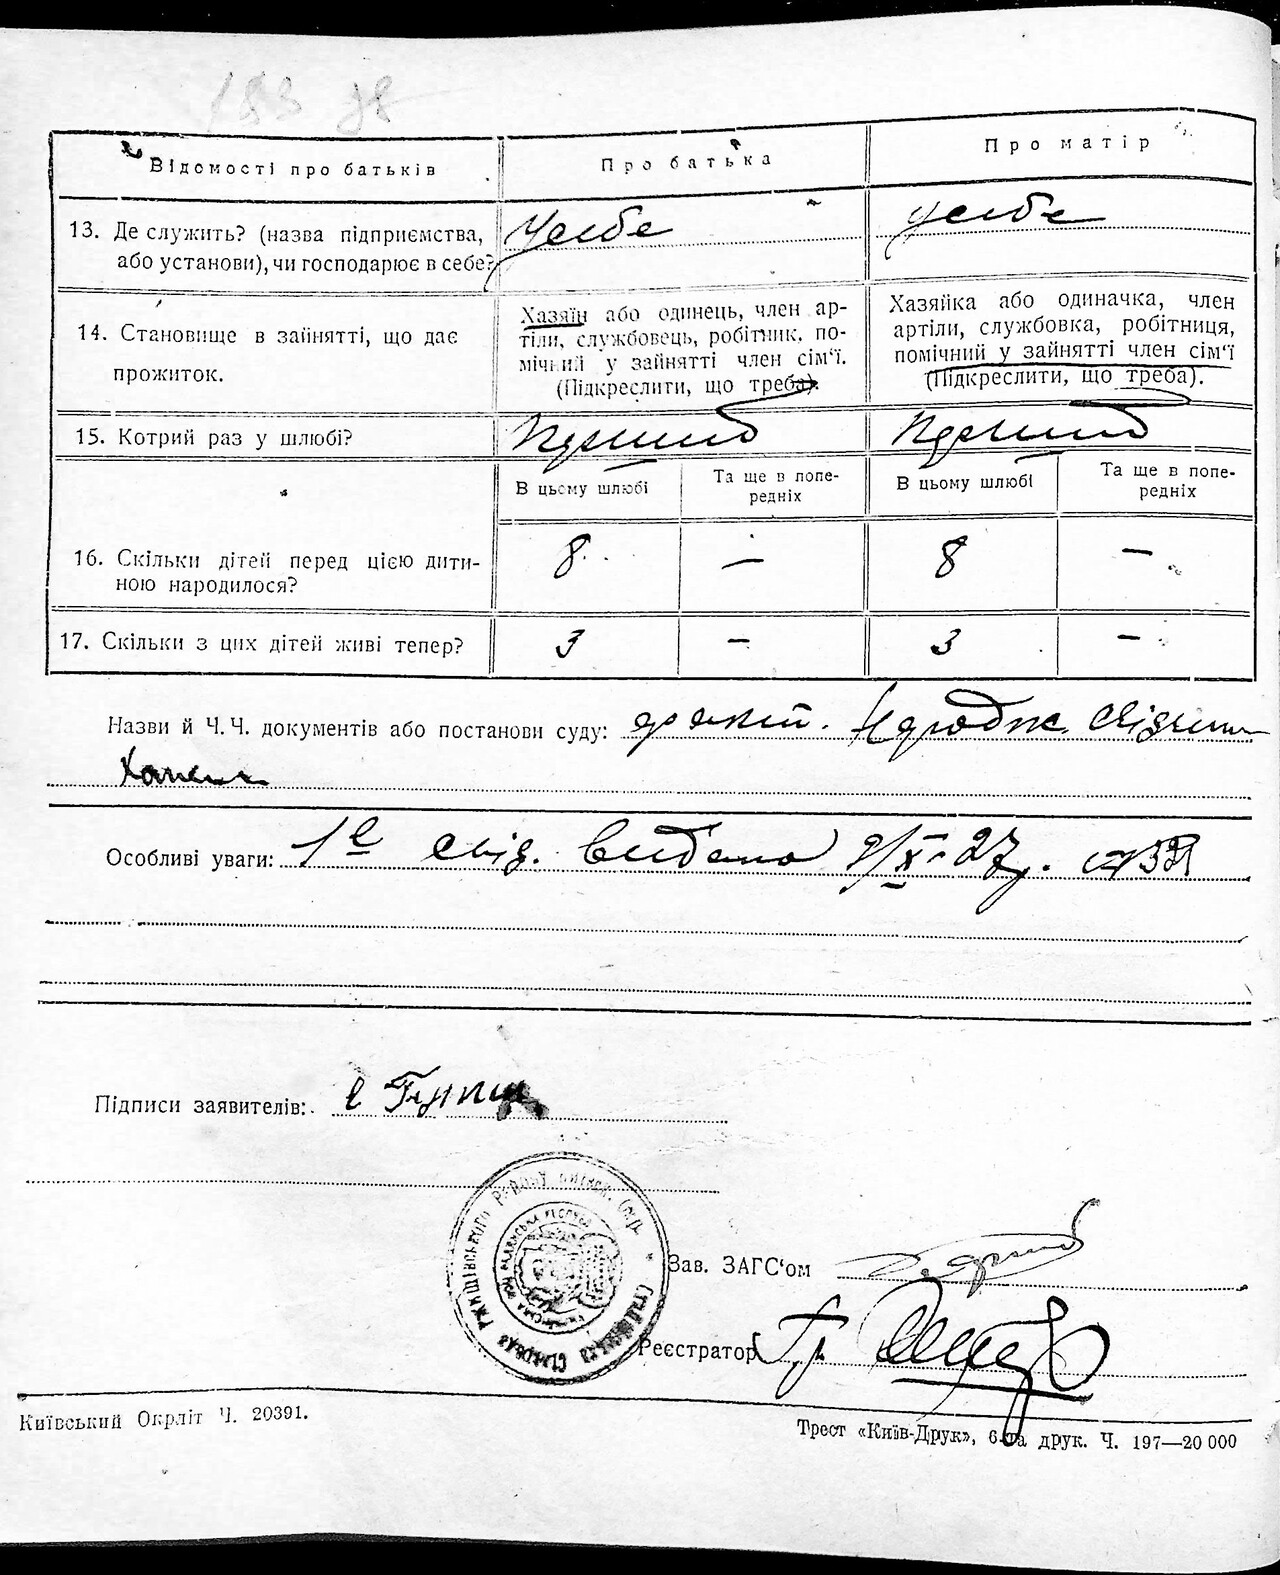 183 98
Відомості про батьків
Про батька
Про матір
13. Де служить? (назва підприємства,
або установи), чи господарює в себе?
У себе
у себе
14. Становище в зайнятті, що дає
прожиток.
Хазяїн або одинець, член ар-
тіли, службовець, робітник, по-
мічний у зайнятті член сім'ї.
(Підкреслити, що треба).
Хазяйка або одиначка, член
артіли, службовка, робітниця,
помічний у зайнятті член сім'ї
(Підкреслити, що треба).
15. Котрий раз у шлюбі?
В цьому шлюбі
Та ще в попе-
редніх
В цьому шлюбі
Та ще в попе-
редніх
16. Скільки дітей перед цією дити-
ною народилося?
8
—
8
—
17. Скільки з цих дітей живі тепер?
3
–
3
–
Назви й Ч. Ч. документів або постанови суду:
Особливі уваги: 1е свід. видано 9/X-27р.
Підписи заявителів:
Зав. ЗАГС'ом
Реєстратор
Київський Окрліт Ч. 20391.
Трест «Київ-Друк», 6-та друк. Ч. 197—20 000